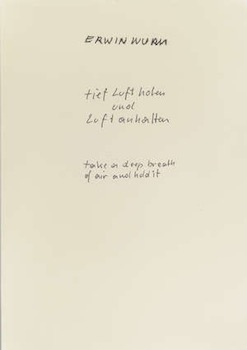 ERWIN WURM
tief Luft holen
und
Luft anhalten
take a deep breath
of air and hold it